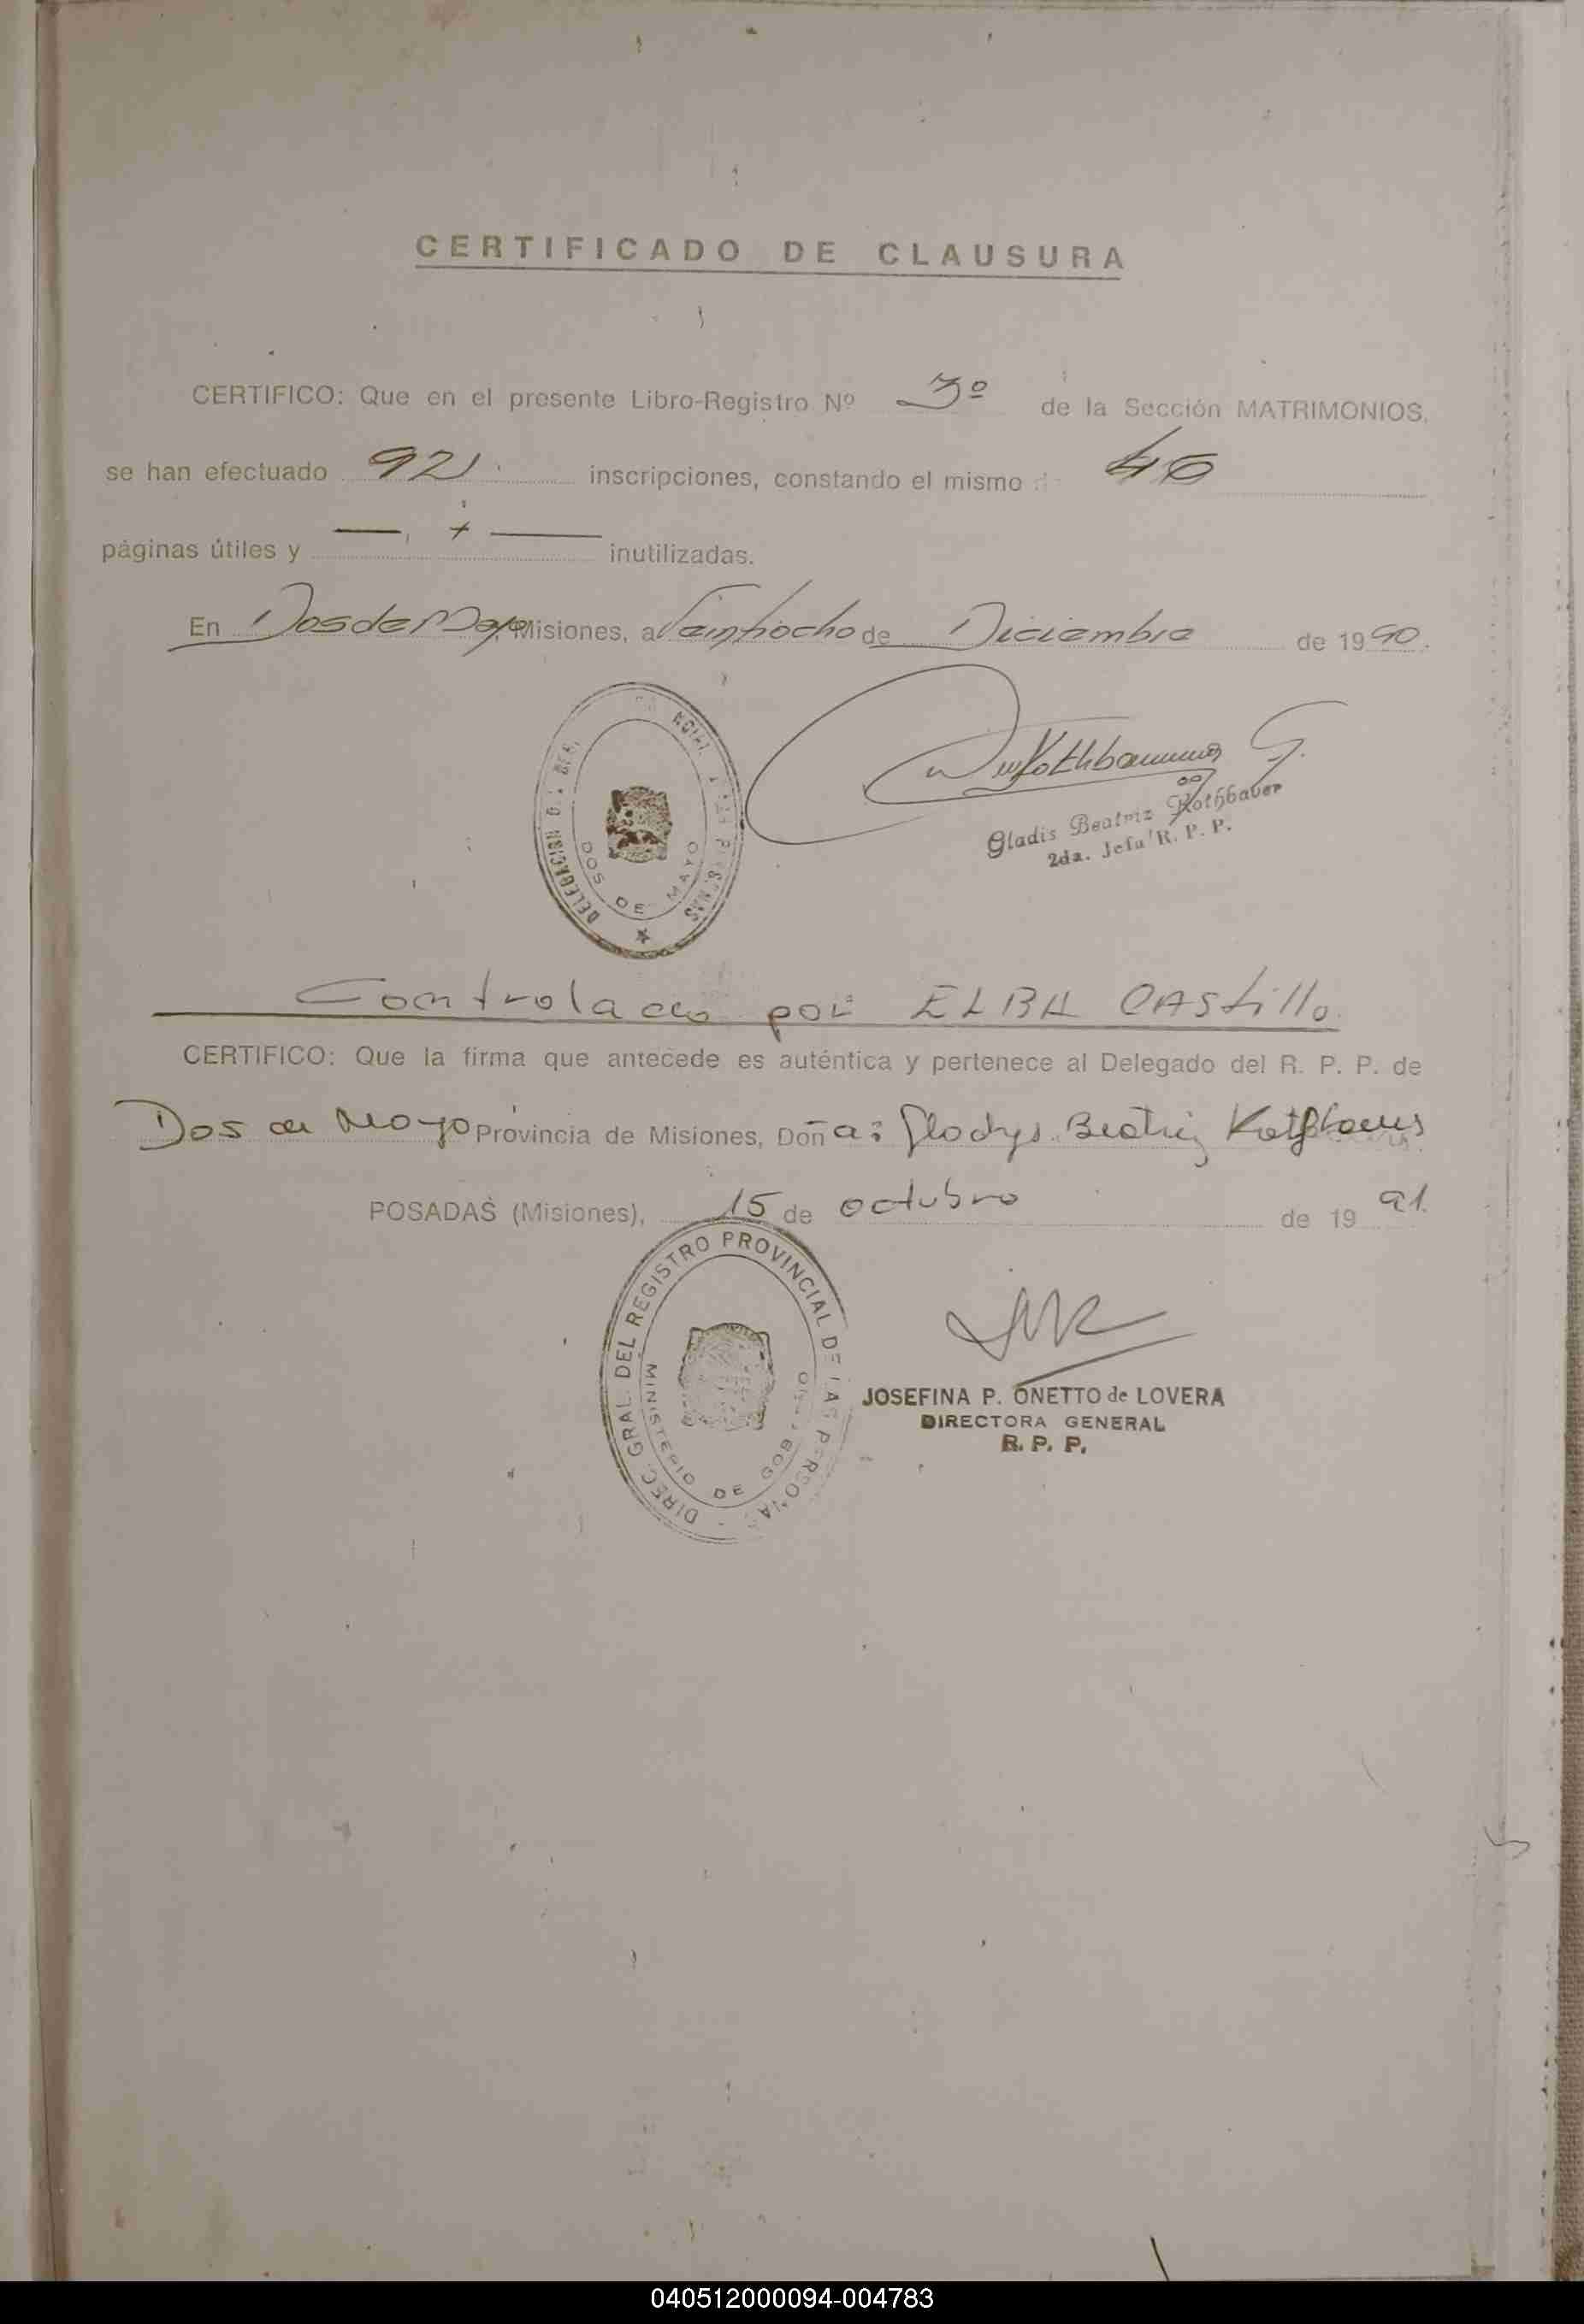 CERTIFICADO DE CLAUSURA
CERTIFICO: Que en el presente Libro-Registro Nº 3º de la Sección MATRIMONIOS,
se han efectuado 92 inscripciones, constando el mismo de 46
páginas útiles y — + — inutilizadas.
En Dos de Mayo Misiones, a Veintiocho de Diciembre de 1990.
DELEGACION
DOS DE MAYO
Gladis Beatriz Rothbauer
2da. Jefa R. P. P.
Controlado por ELBA CAStillo
CERTIFICO: Que la firma que antecede es auténtica y pertenece al Delegado del R. P. P. de
Dos de Mayo Provincia de Misiones, Doña: Gladys Beatriz
POSADAS (Misiones), 15 de octubre de 1991.
DIREC. GRAL. DEL REGISTRO PROVINCIAL DE LAS PERSONAS
MINISTERIO DE GOBIERNO
JOSEFINA P. ONETTO de LOVERA
DIRECTORA GENERAL
R. P. P.
040512000094-004783